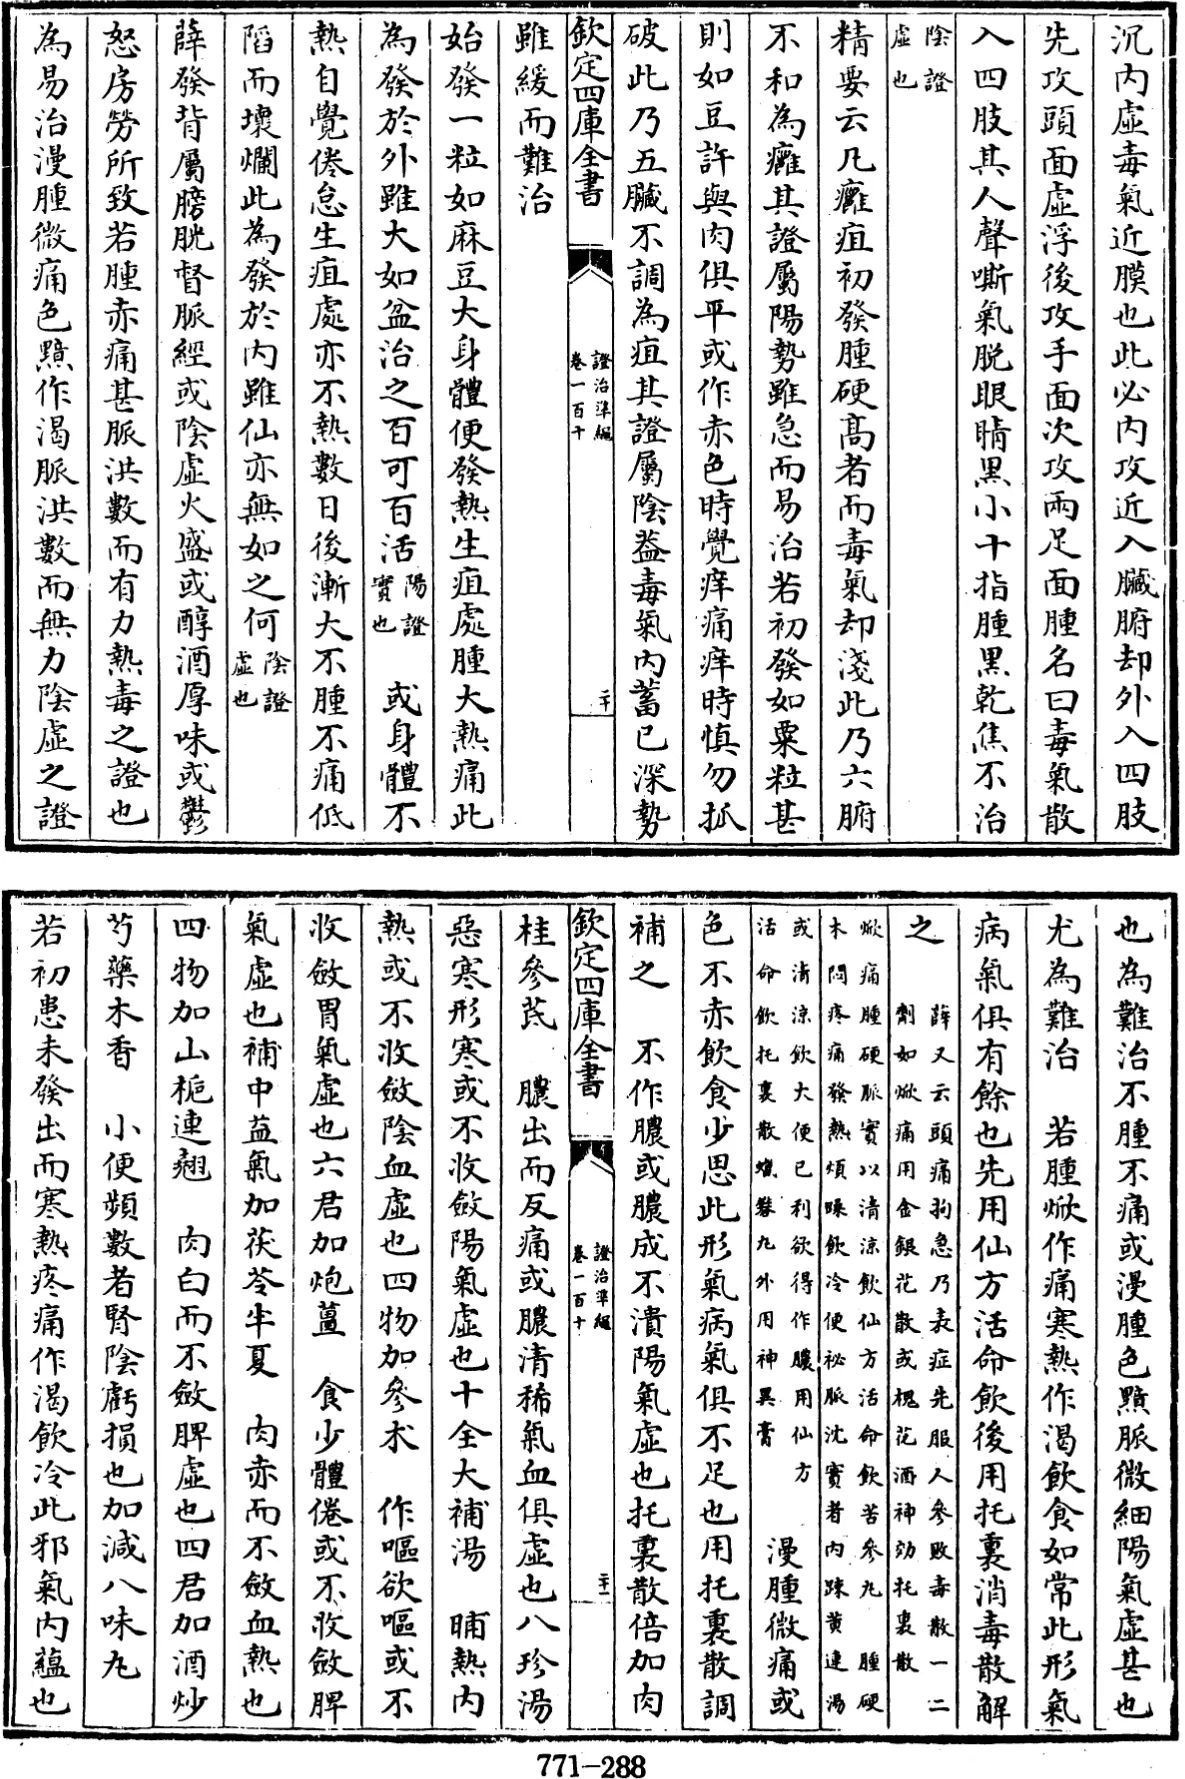 沉内虛毒氣近膜也此必内攻近入臟腑却外入四肢
先攻頭面虛浮後攻手面次攻兩足面腫名曰毒氣散
入四肢其人聲嘶氣脱眼睛黑小十指腫黑乾焦不治
陰證
虛也
精要云凡癰疽初發腫硬髙者而毒氣却淺此乃六腑
不和為癰其證屬陽勢雖急而易治若初發如粟粒甚
則如豆許與肉俱平或作赤色時覺痒痛痒時慎勿抓
破此乃五臟不調為疽其證屬陰葢毒氣内蓄已深勢
欽定四庫全書
證治準繩
卷一百十
二十
雖緩而難治
始發一粒如麻豆大身體便發熱生疽處腫大熱痛此
為發於外雖大如盆治之百可百活陽證實也　或身體不
熱自覺倦怠生疽處亦不熱數日後漸大不腫不痛低
陷而壞爛此為發於内雖仙亦無如之何陰證虛也
薛發背屬膀胱督脈經或陰虛火盛或醇酒厚味或鬱
怒房勞所致若腫赤痛甚脈洪數而有力熱毒之證也
為易治漫腫微痛色黯作渴脈洪數而無力陰虛之證
也為難治不腫不痛或漫腫色黯脈微細陽氣虛甚也
尤為難治　若腫焮作痛寒熱作渴飲食如常此形氣
病氣俱有餘也先用仙方活命飲後用托裏消毒散解
之
薛又云頭痛拘急乃表症先服人參敗毒散一二
劑如焮痛用金銀花散或槐花酒神効托裏散
焮痛腫硬脈實以清涼飲仙方活命飲苦參丸　腫硬
木悶疼痛發熱煩躁飲冷便秘脈沈實者内踈黄連湯
或清涼飲大便已利欲得作膿用仙方
活命飲托裏散蠟礬丸外用神異膏
漫腫微痛或
色不赤飲食少思此形氣病氣俱不足也用托裏散調
補之　不作膿或膿成不潰陽氣虛也托裏散倍加肉
欽定四庫全書
證治準繩
卷一百十
二十一
桂參芪　膿出而反痛或膿清稀氣血俱虛也八珍湯
惡寒形寒或不收斂陽氣虛也十全大補湯　晡熱内
熱或不收斂陰血虛也四物加參朮　作嘔欲嘔或不
收斂胃氣虛也六君加炮薑　食少體倦或不收斂脾
氣虛也補中益氣加茯苓半夏　肉赤而不斂血熱也
四物加山梔連翹　肉白而不斂脾虛也四君加酒炒
芍藥木香　小便頻數者腎陰虧損也加減八味丸
若初患未發出而寒熱疼痛作渴飲冷此邪氣内藴也
771-288